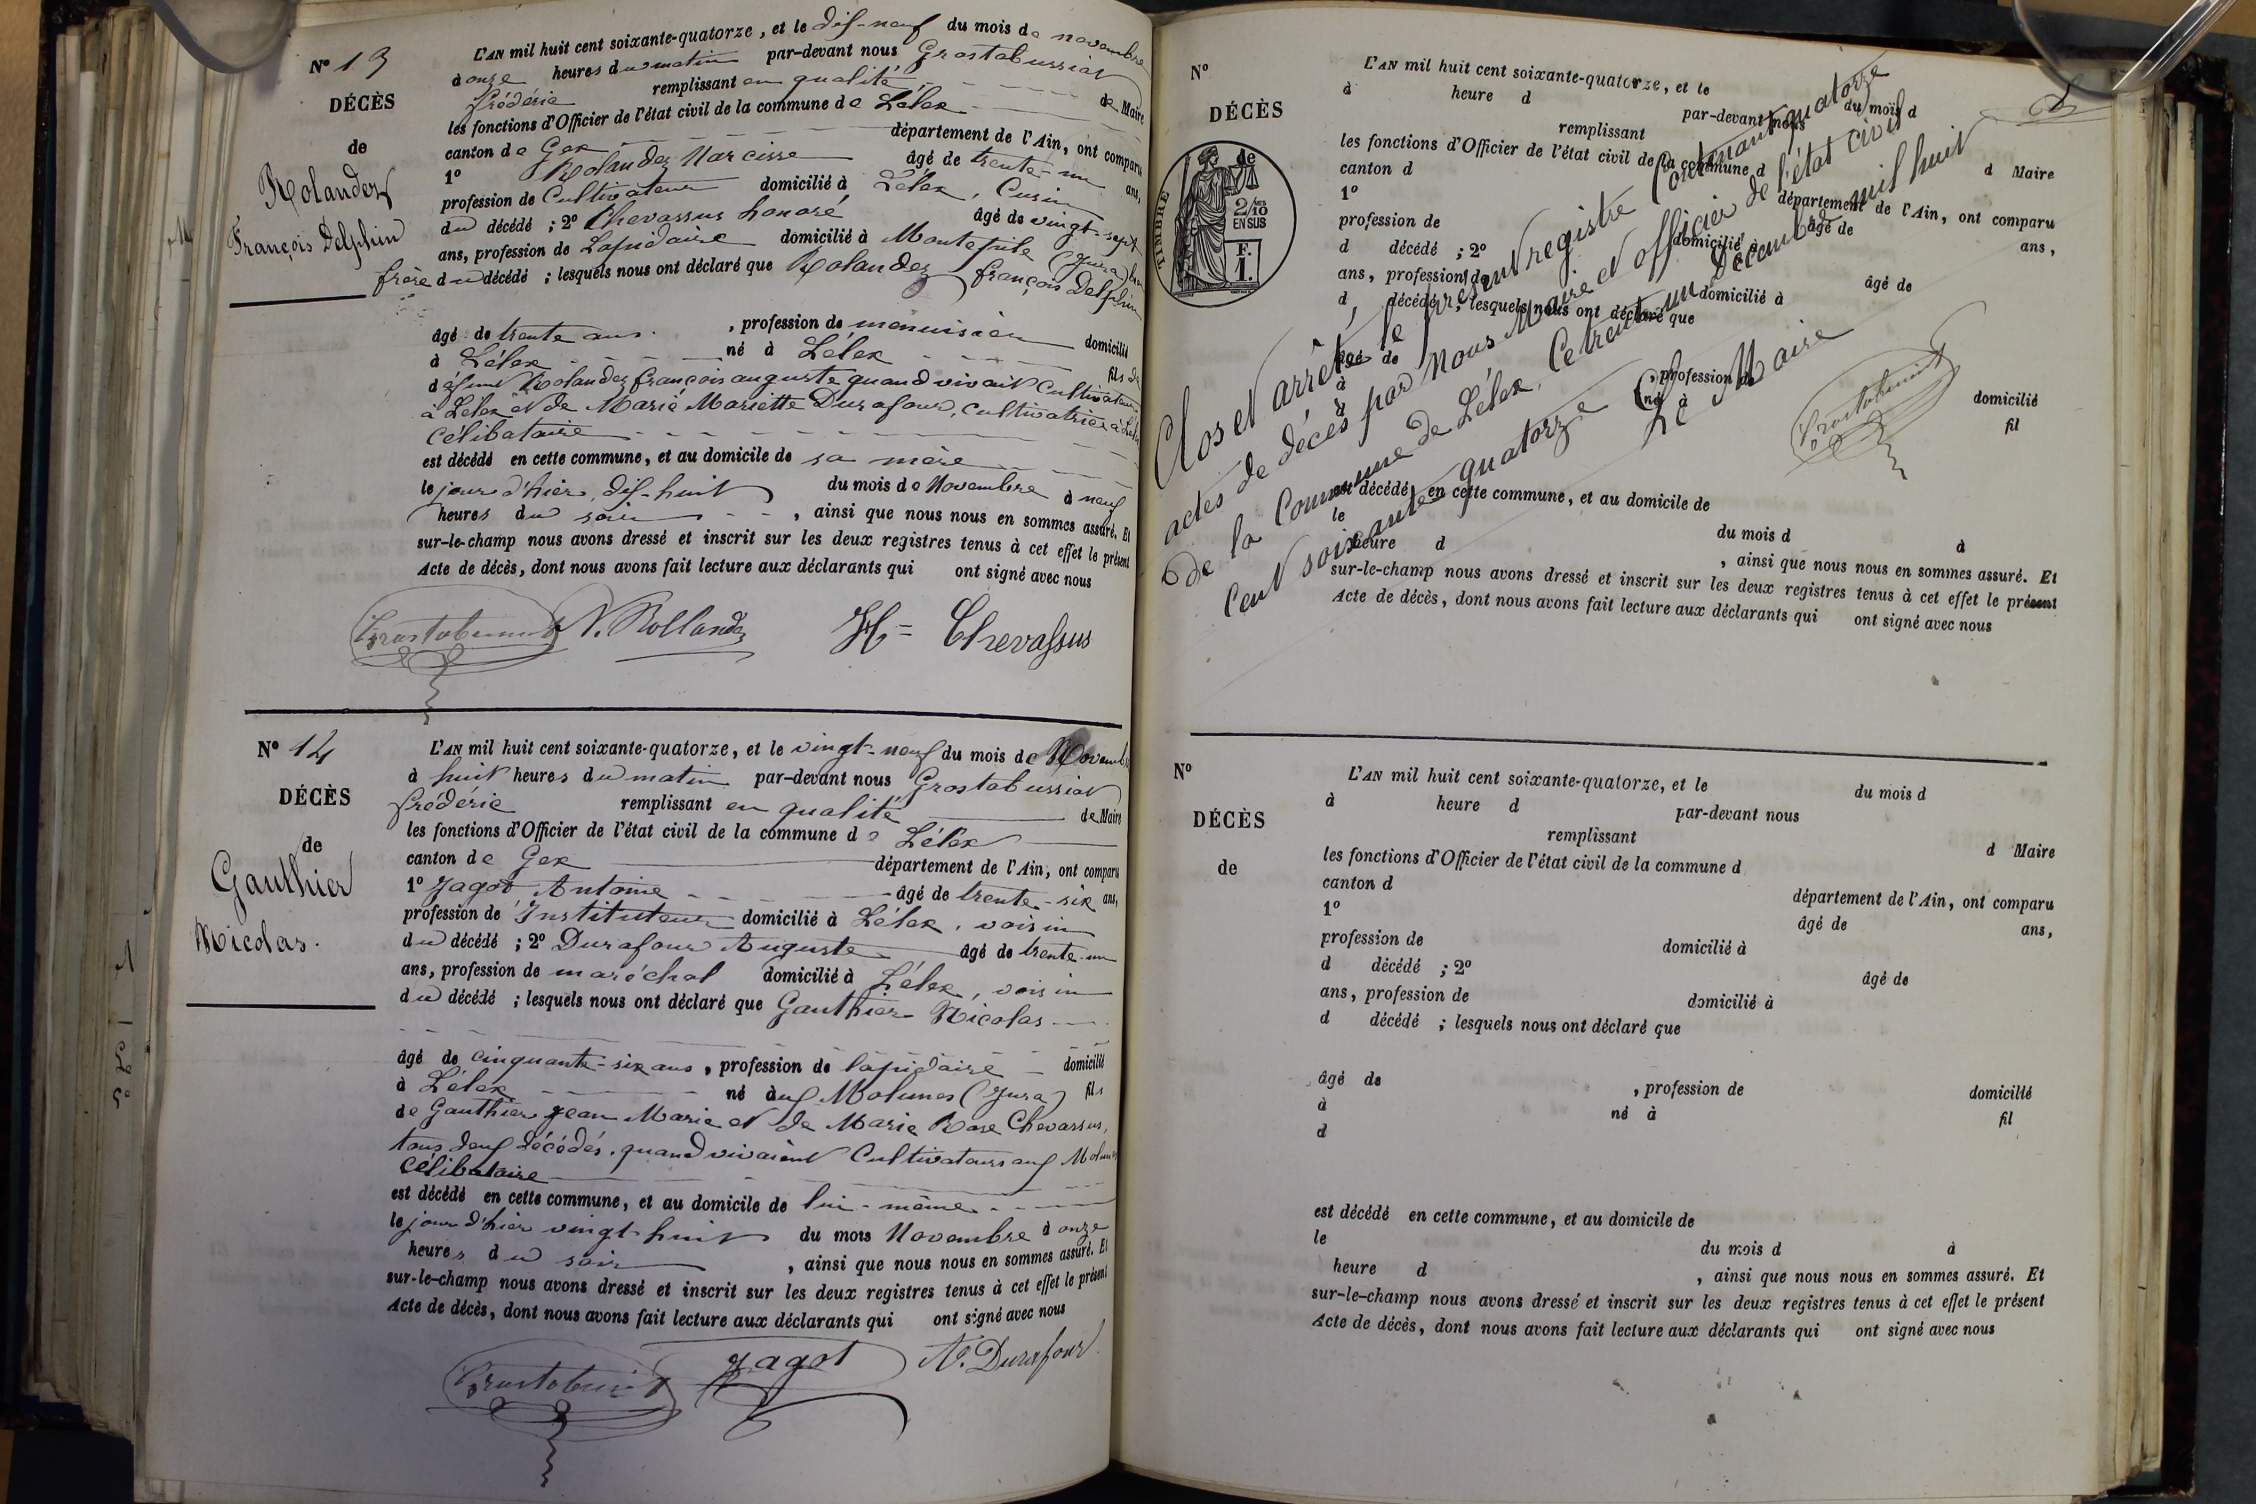 N° 13
DÉCÈS
de
Rolandez
François Delphin
L'AN mil huit cent soixante-quatorze, et le dix-neuf du mois de novembre
à onze heures du matin par-devant nous Grostabussiat
frédéric remplissant en qualité de Maire
les fonctions d'Officier de l'état civil de la commune de Lélex
canton de Gex département de l'Ain, ont comparu
1° Rolandez Narcisse âgé de trente-un ans,
profession de Cultivateur domicilié à Lélex, Cusin
du décédé ; 2° Chevassus honoré âgé de vingt-sept
ans, profession de Lapidaire domicilié à Montépile (Jura)
frère du décédé ; lesquels nous ont déclaré que Rolandez françois Delphin
âgé de trente ans , profession de menuisier domicilié
à Lélex né à Lélex fils de
défunt Rolandez françois auguste quand vivait Cultivateur
à Lélex et de Marie Mariette Durafour, cultivatrice à Lélex
Célibataire
est décédé en cette commune, et au domicile de sa mère
le jour d'hier, dix-huit du mois de Novembre à neuf
heures du soir , ainsi que nous nous en sommes assuré. Et
sur-le-champ nous avons dressé et inscrit sur les deux registres tenus à cet effet le présent
Acte de décès, dont nous avons fait lecture aux déclarants qui ont signé avec nous
Grostabussiat N. Rollandez H= Chevassus
N° 14
DÉCÈS
de
Gauthier
Nicolas.
L'AN mil huit cent soixante-quatorze, et le vingt-neuf du mois de Novembre
à huit heures du matin par-devant nous Grostabussiat
frédéric remplissant en qualité de Maire
les fonctions d'Officier de l'état civil de la commune de Lélex
canton de Gex département de l'Ain, ont comparu
1° Jagot Antoine âgé de trente-six ans,
profession de Instituteur domicilié à Lélex, voisin
du décédé ; 2° Durafour Auguste âgé de trente-un
ans, profession de maréchal domicilié à Lélex, voisin
du décédé ; lesquels nous ont déclaré que Gauthier Nicolas
âgé de cinquante-six ans, profession de lapidaire domicilié
à Lélex né à aux Molunes (Jura) fils
de Gauthier jean Marie et de Marie Rose Chevassus,
tous deux décédés, quand vivaient Cultivateurs aux Molunes
Célibataire
est décédé en cette commune, et au domicile de lui-même
le jour d'hier vingt-huit du mois Novembre à onze
heures du soir , ainsi que nous nous en sommes assuré. Et
sur-le-champ nous avons dressé et inscrit sur les deux registres tenus à cet effet le présent
Acte de décès, dont nous avons fait lecture aux déclarants qui ont signé avec nous
Grostabussiat Jagot A. Durafour
N°
DÉCÈS
de
TIMBRE
2/10
EN SUS
F.
1.
L'AN mil huit cent soixante-quatorze, et le du mois d
à heure d par-devant nous
remplissant d Maire
les fonctions d'Officier de l'état civil de la commune d
canton d département de l'Ain, ont comparu
1° âgé de ans,
profession de domicilié à
d décédé ; 2° âgé de
ans, profession de domicilié à
d décédé ; lesquels nous ont déclaré que
âgé de , profession de domicilié
à né à fil
d
est décédé en cette commune, et au domicile de
le du mois d à
heure d , ainsi que nous nous en sommes assuré. Et
sur-le-champ nous avons dressé et inscrit sur les deux registres tenus à cet effet le présent
Acte de décès, dont nous avons fait lecture aux déclarants qui ont signé avec nous
Clos et arrêté le présent registre Contenant quatorze
actes de décès par Nous Maire et officier de l'état civil
de la Commune de Lélex, Ce trente un Décembre mil huit
Cent soixante quatorze
Le Maire
Grostabussiat
N°
DÉCÈS
de
L'AN mil huit cent soixante-quatorze, et le du mois d
à heure d par-devant nous
remplissant d Maire
les fonctions d'Officier de l'état civil de la commune d
canton d département de l'Ain, ont comparu
1° âgé de ans,
profession de domicilié à
d décédé ; 2° âgé de
ans, profession de domicilié à
d décédé ; lesquels nous ont déclaré que
âgé de , profession de domicilié
à né à fil
d
est décédé en cette commune, et au domicile de
le du mois d à
heure d , ainsi que nous nous en sommes assuré. Et
sur-le-champ nous avons dressé et inscrit sur les deux registres tenus à cet effet le présent
Acte de décès, dont nous avons fait lecture aux déclarants qui ont signé avec nous